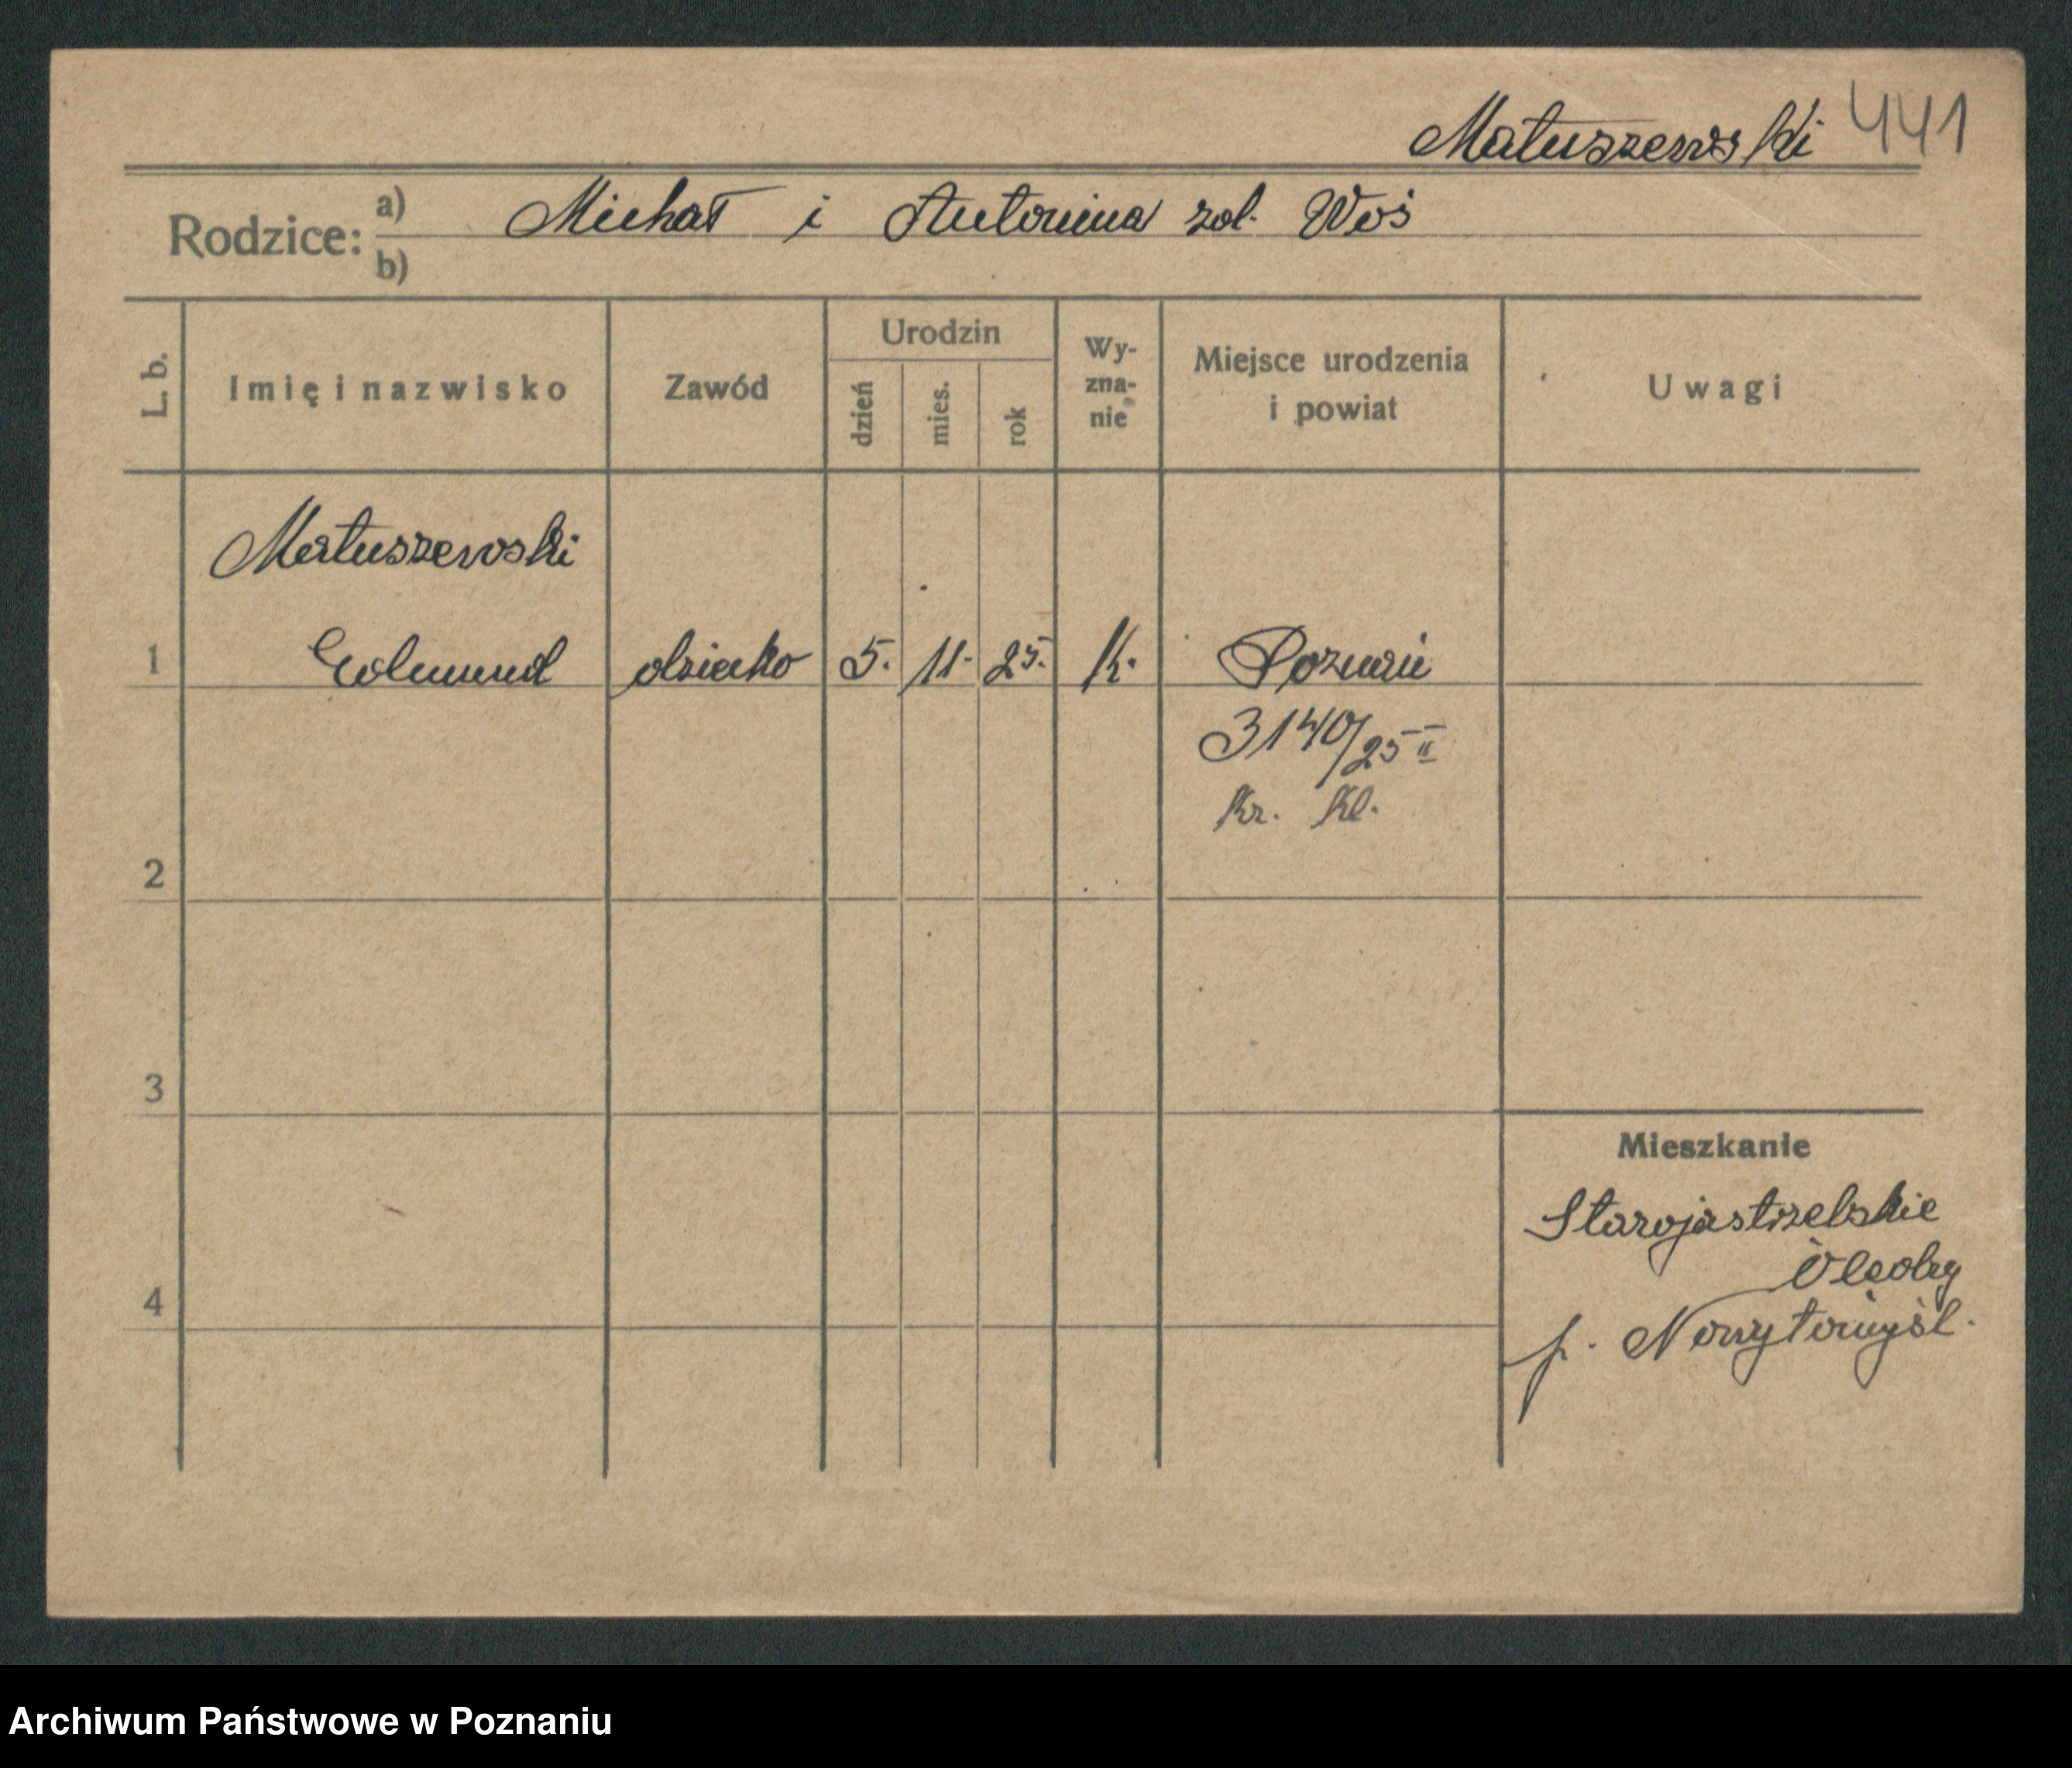 Matuszewski 441
Rodzice: a) Michał i Antonina zd. Woś
b)
L. b.
Imię i nazwisko
Zawód
Urodzin
dzień
mies.
rok
Wy-
zna-
nie
Miejsce urodzenia
i powiat
Uwagi
Matuszewski
1 Edmund dziecko 5. 11. 25. k. Poznań
3140/25 II
Kr. Kl.
2
3
Mieszkanie
Starojastrzelskie
Olędry
4
p. Nowytomyśl.
Archiwum Państwowe w Poznaniu